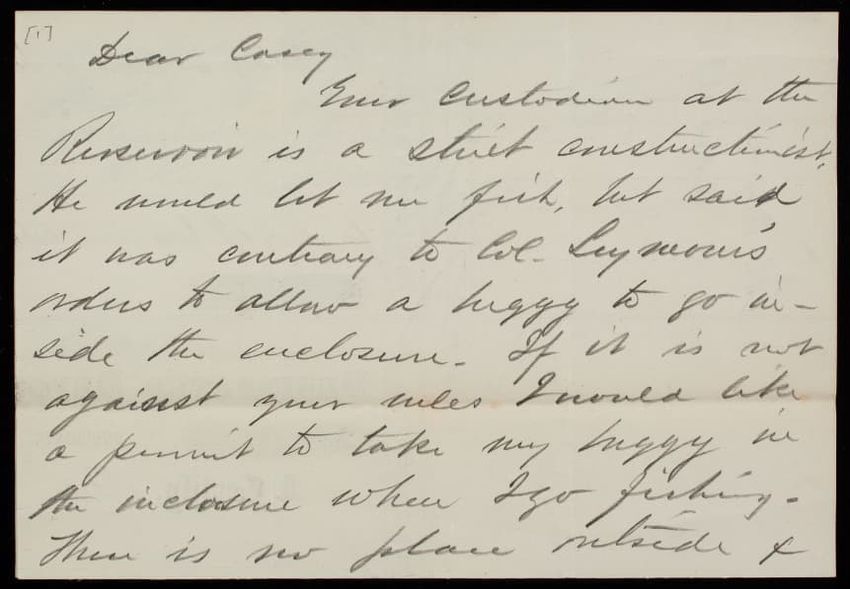 [1]
Dear Casey
Your Custodian at the
Reservoir is a strict constructionist.
He would let me fish, but said
it was contrary to Col. Seymour's
orders to allow a buggy to go in-
side the enclosure. If it is not
against your rules I would like
a permit to take my buggy in
the inclosure when I go fishing.
There is no place outside &